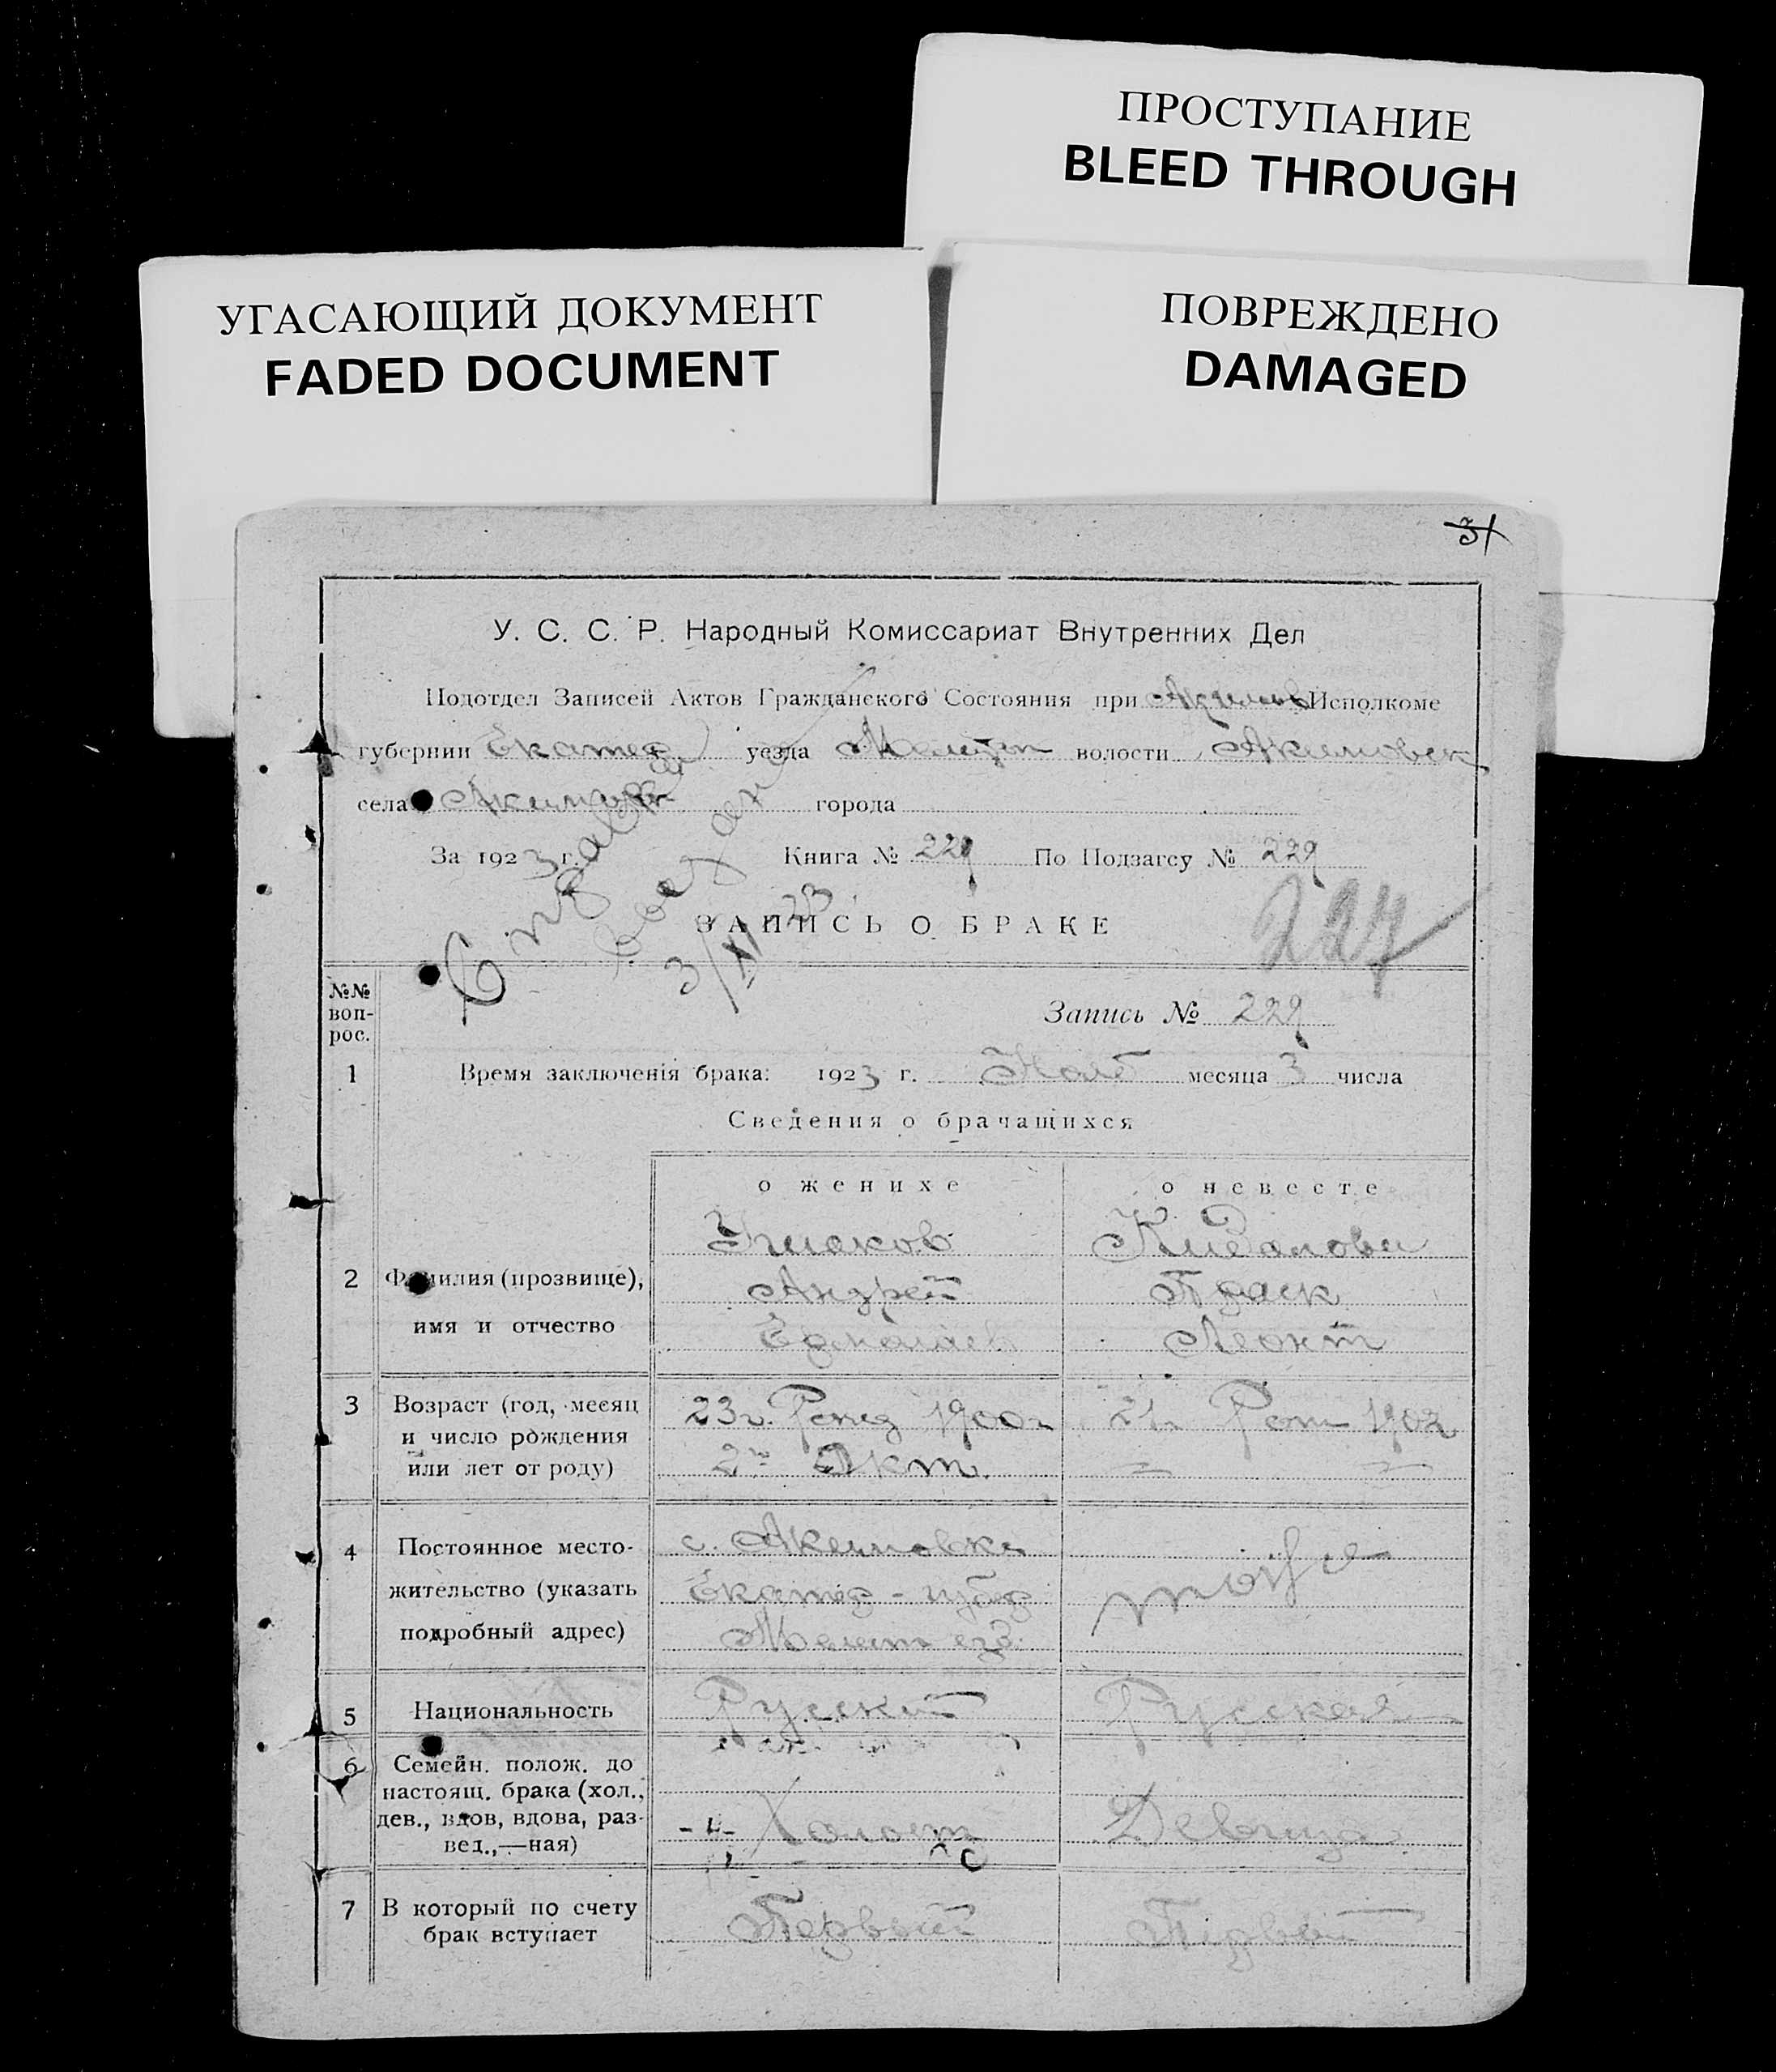 ПРОСТУПАНИЕ
BLEED THROUGH
УГАСАЮЩИЙ ДОКУМЕНТ
FADED DOCUMENT
ПОВРЕЖДЕНО
DAMAGED
31
У. С. С. Р. Народный Комиссариат Внутренних Дел
Подотдел Записей Актов Гражданского Состояния при Акимов Исполкоме
губернии Екатер уезда Мелитоп волости Акимовск
села Акимовк города
За 1923 г. Книга № 229 По Подзагсу № 229
ЗАПИСЬ О БРАКЕ
229
3/XI 23
№№ воп-рос.
Запись № 229
1 Время заключенія брака: 1923 г. Нояб месяца 3 числа
Сведения о брачащихся
о женихе о невесте
Ушаков
2 Фамилия (прозвище), Андрей Праск
имя и отчество Леонт
3 Возраст (год, месяц 23 г. 1900 г 21 г 1902
и число рождения 2го Окт.
или лет от роду)
4 Постоянное место- с. Акимовка тоже
жительство (указать Екатер - губер
подробный адрес) Мелит уез.
5 Национальность Русский Русская
6 Семейн. полож. до
настоящ. брака (хол.,
дев., вдов, вдова, раз- -"- Холост Девица
вед.,—ная)
7 В который по счету Первый Первый
брак вступает